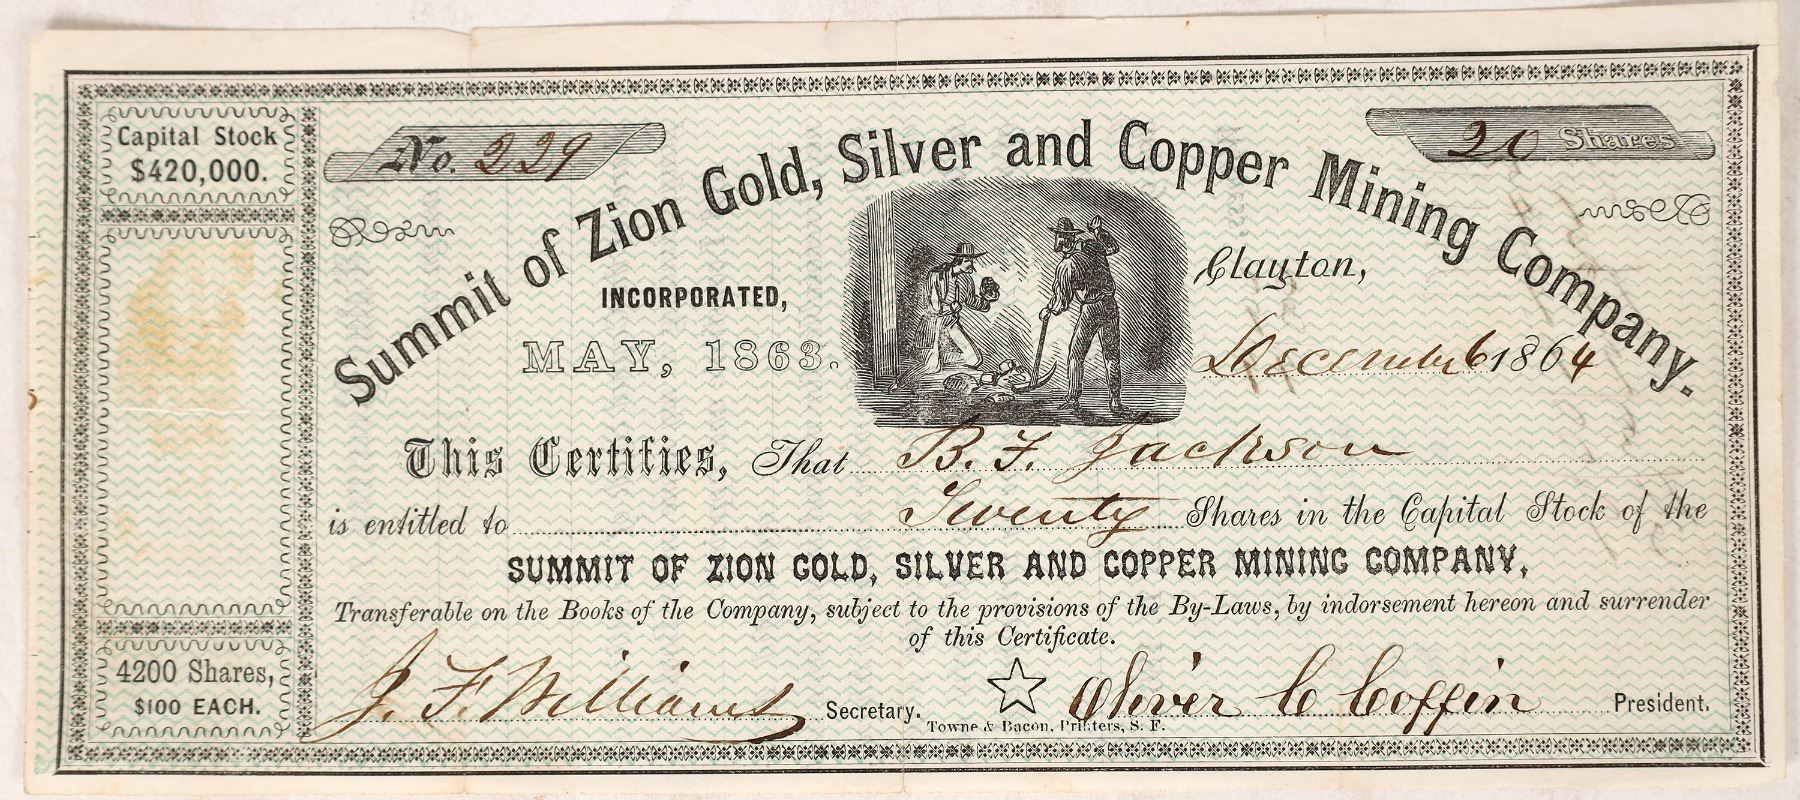 Capital Stock
$420,000.
No. 229
20 Shares
Summit of Zion Gold, Silver and Copper Mining Company.
INCORPORATED,
MAY, 1863.
Clayton,
December 6 1864
This Certifies, That B. F. Jackson
is entitled to Twenty Shares in the Capital Stock of the
SUMMIT OF ZION GOLD, SILVER AND COPPER MINING COMPANY,
Transferable on the Books of the Company, subject to the provisions of the By-Laws, by indorsement hereon and surrender
of this Certificate.
4200 Shares,
$100 EACH.
J. F. Williams Secretary.
Oliver C Coffin President.
Towne & Bacon, Printers, S. F.